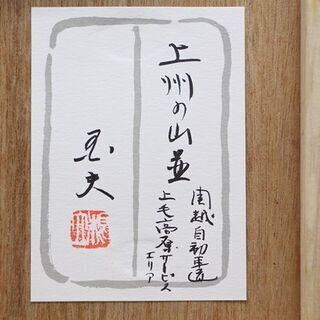 上州の山並
関越自動車道
上毛高原サービス
エリア